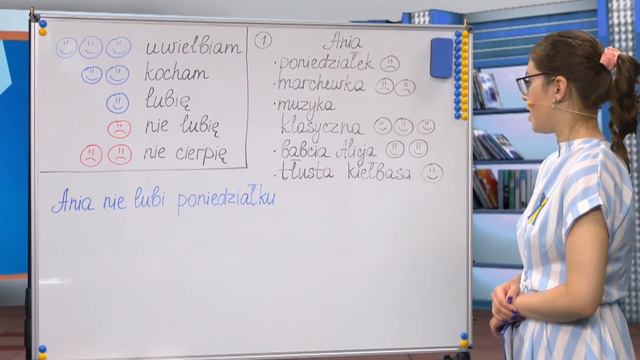 uwielbiam
kocham
lubię
nie lubię
nie cierpię
1 Ania
· poniedziałek
· marchewka
· muzyka
klasyczna
· babcia Alicja
· tłusta kiełbasa
Ania nie lubi poniedziałku